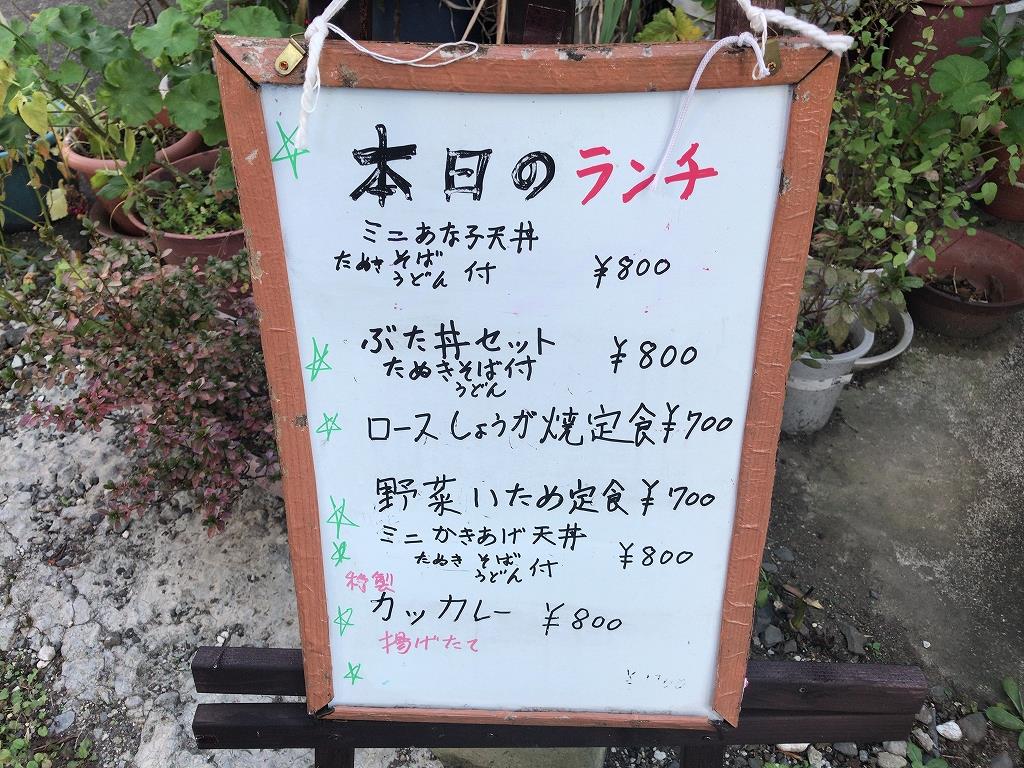 本日のランチ
ミニあな子天丼
たぬき そば うどん 付 ¥800
ぶた丼セット ¥800
たぬきそば付
うどん
ロースしょうが焼定食¥700
野菜いため定食¥700
ミニかきあげ天丼
たぬき そば うどん 付 ¥800
特製
カッカレー ¥800
揚げたて